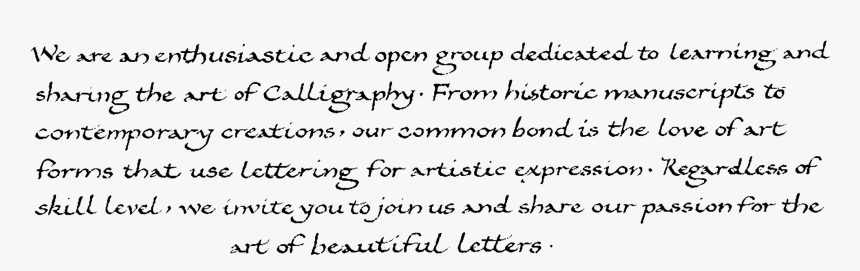 We are an enthusiastic and open group dedicated to learning and
sharing the art of Calligraphy. From historic manuscripts to
contemporary creations, our common bond is the love of art
forms that use lettering for artistic expression. Regardless of
skill level, we invite you to join us and share our passion for the
art of beautiful letters.